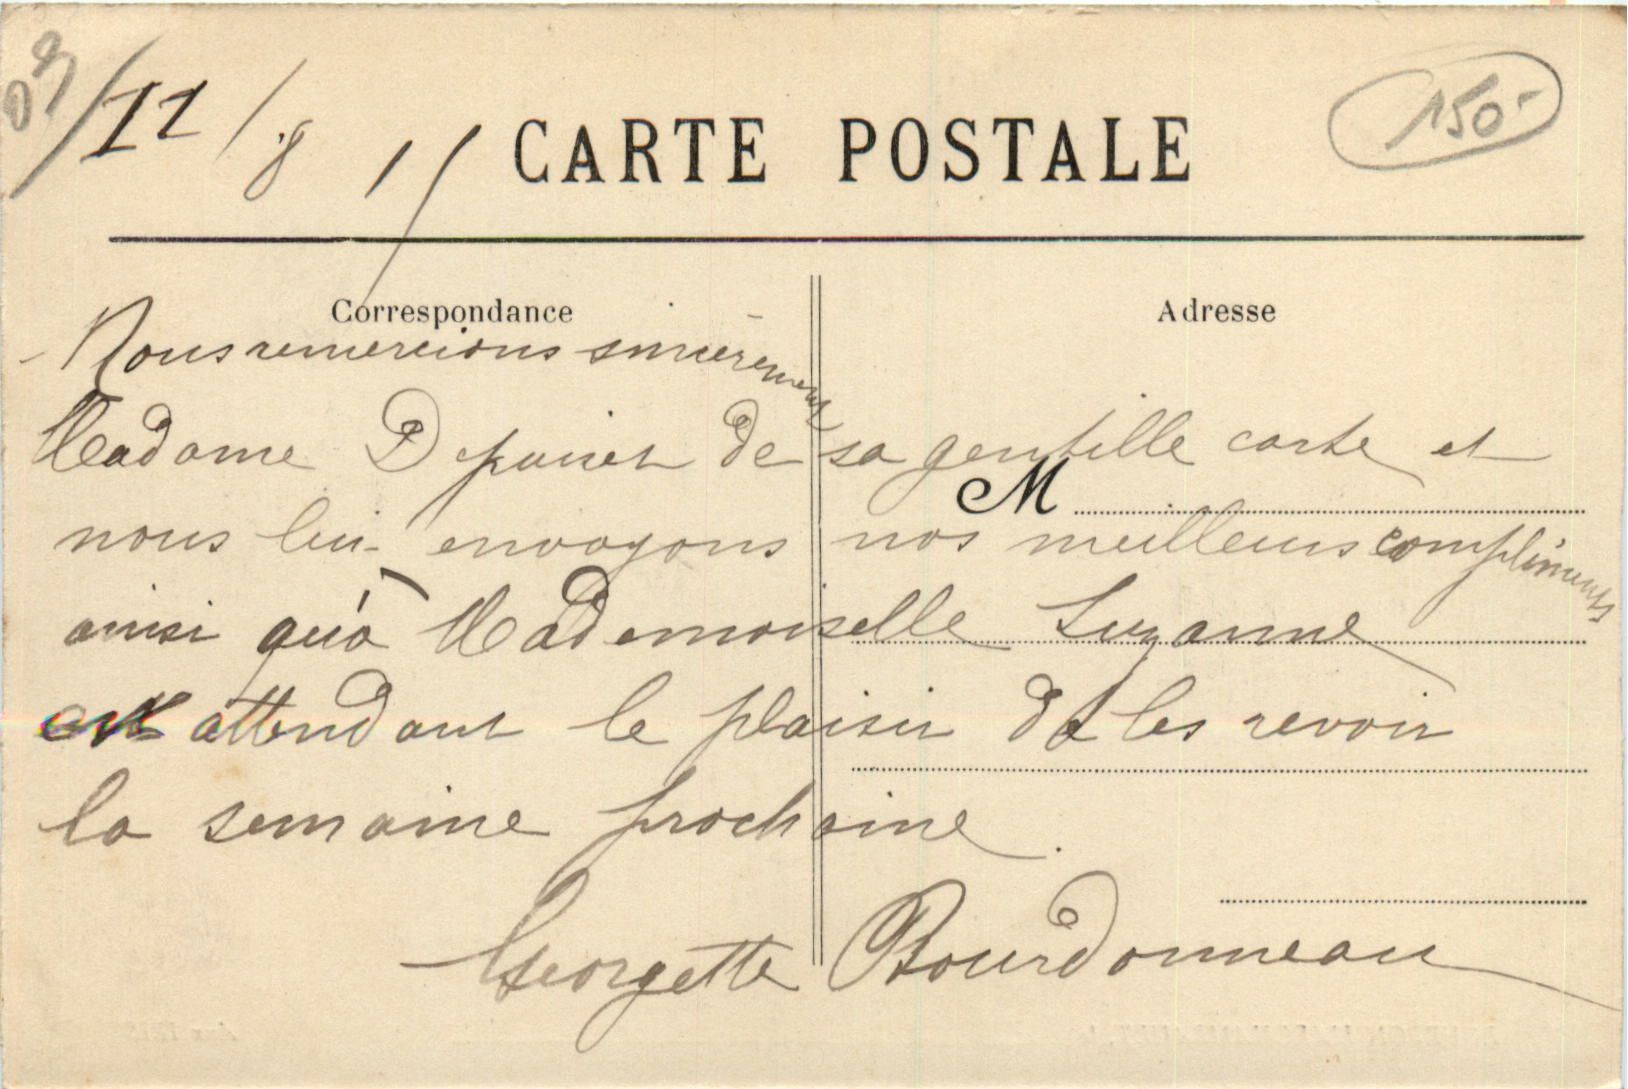 03/11/8 11
CARTE POSTALE
150-
Correspondance
Adresse
Nous remercions sincèrement
Madame Depuiset de sa gentille carte et
M
nous lui envoyons nos meilleurs compliments
ainsi qu'à Mademoiselle Suzanne
en attendant le plaisir de les revoir
la semaine prochaine.
Georgette Bourdonneau